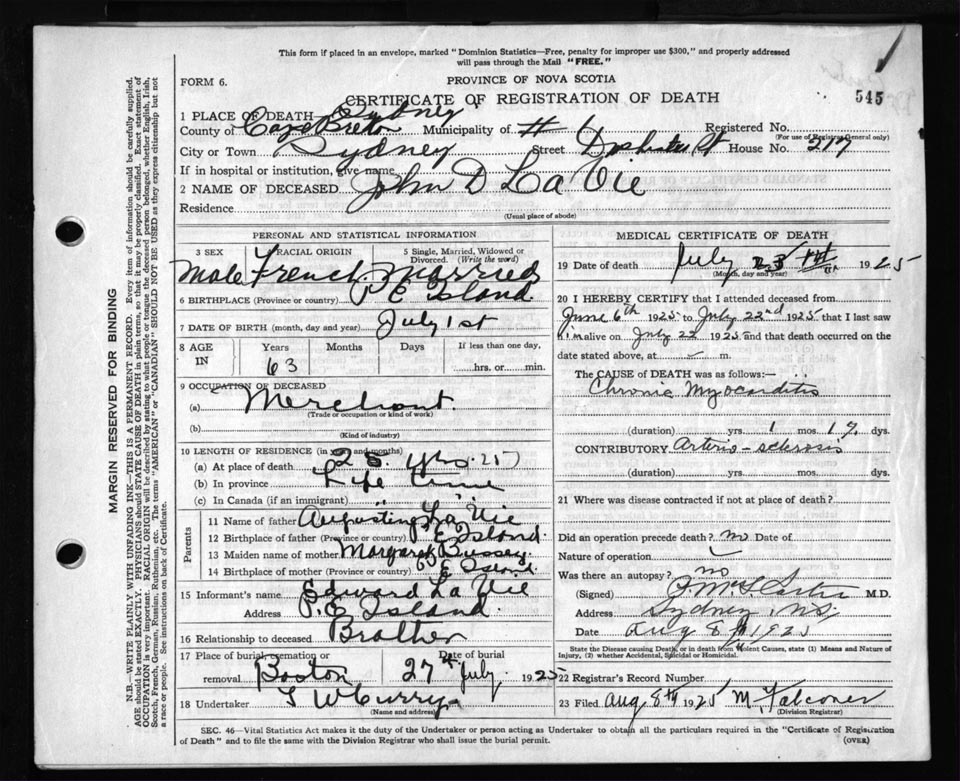 This form if placed in an envelope, marked "Dominion Statistics—Free, penalty for improper use $300," and properly addressed
will pass through the Mail "FREE."
FORM 6.
PROVINCE OF NOVA SCOTIA
CERTIFICATE OF REGISTRATION OF DEATH
545
1 PLACE OF DEATH— Sydney
County of Cape Breton Municipality of # 1 Registered No.
(For use of Registrar General only)
City or Town Sydney Street St House No. 277
If in hospital or institution, give name
2 NAME OF DECEASED John D La Vie
Residence
(Usual place of abode)
PERSONAL AND STATISTICAL INFORMATION
3 SEX 4 RACIAL ORIGIN 5 Single, Married, Widowed or Divorced. (Write the word)
Male French Married
6 BIRTHPLACE (Province or country) P. E Island
7 DATE OF BIRTH (month, day and year) July 1st
8 AGE IN Years Months Days If less than one day,
63 hrs. or min.
9 OCCUPATION OF DECEASED
(a) Merchant
(Trade or occupation or kind of work)
(b)
(Kind of industry)
10 LENGTH OF RESIDENCE (in years and months)
(a) At place of death 25 yrs.
(b) In province Life Time
(c) In Canada (if an immigrant) " "
Parents
11 Name of father Augustine La Vie
12 Birthplace of father (Province or country) P. E Island
13 Maiden name of mother Margaret Bussey
14 Birthplace of mother (Province or country) P E Island
15 Informant's name Edward La Vie
Address P. E Island
16 Relationship to deceased Brother
17 Place of burial, cremation or removal Boston Date of burial 27th July 1925
18 Undertaker Curry
(Name and address)
MEDICAL CERTIFICATE OF DEATH
19 Date of death July 1925
(Month, day and year)
20 I HEREBY CERTIFY that I attended deceased from
June 6th 1925 to July 22nd 1925 that I last saw
him alive on July 22 1925 and that death occurred on the
date stated above, at m.
The CAUSE of DEATH was as follows:—
Chronic Myocarditis
(duration) yrs. 1 mos. 17 dys.
CONTRIBUTORY Arterio-sclerosis
(duration) yrs. mos. dys.
21 Where was disease contracted if not at place of death?
Did an operation precede death? no Date of
Nature of operation
Was there an autopsy? no
(Signed) M.D.
Address Sydney, N.S.
Date Aug 8th 1925
State the Disease causing Death, or in death from Violent Causes, state (1) Means and Nature of
Injury, (2) whether Accidental, Suicidal or Homicidal.
22 Registrar's Record Number
23 Filed Aug 8th 1925 M. Falconer
(Division Registrar)
SEC. 46—Vital Statistics Act makes it the duty of the Undertaker or person acting as Undertaker to obtain all the particulars required in the "Certificate of Registration
of Death" and to file the same with the Division Registrar who shall issue the burial permit.
(OVER)
MARGIN RESERVED FOR BINDING
N.B.—WRITE PLAINLY WITH UNFADING INK—THIS IS A PERMANENT RECORD. Every item of information should be carefully supplied.
AGE should be stated EXACTLY. PHYSICIANS should STATE CAUSE OF DEATH in plain terms, so that it may be properly classified. Exact statement of
OCCUPATION is very important. RACIAL ORIGIN will be described by stating to what people or tongue the deceased person belonged, whether English, Irish,
Scotch, French, German, Russian, Ruthenian, etc. The terms "AMERICAN" or "CANADIAN" SHOULD NOT BE USED as they express citizenship but not
a race or people. See instructions on back of Certificate.